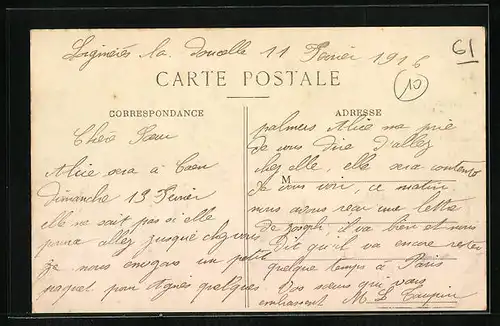 Lignières la doucelle 11 Fevrier 1916
61
10
CARTE POSTALE
CORRESPONDANCE
Chère Soeur
Alice sera à Caen
dimanche 13 Fevrier
elle ne sait pas si elle
pourra allez jusque chez vous
je vous envoyons un petit
paquet pour Agnès quelques
ADRESSE
M
palmiers Alice me prie
de vous dire d'allez
chez elle, elle sera contente
de vous voir, ce matin
nous avons reçu une lettre
de Joseph, il va bien et nous
dit qu'il va encore rester
quelque temps à Paris
Vos soeurs qui vous
embrassent M L